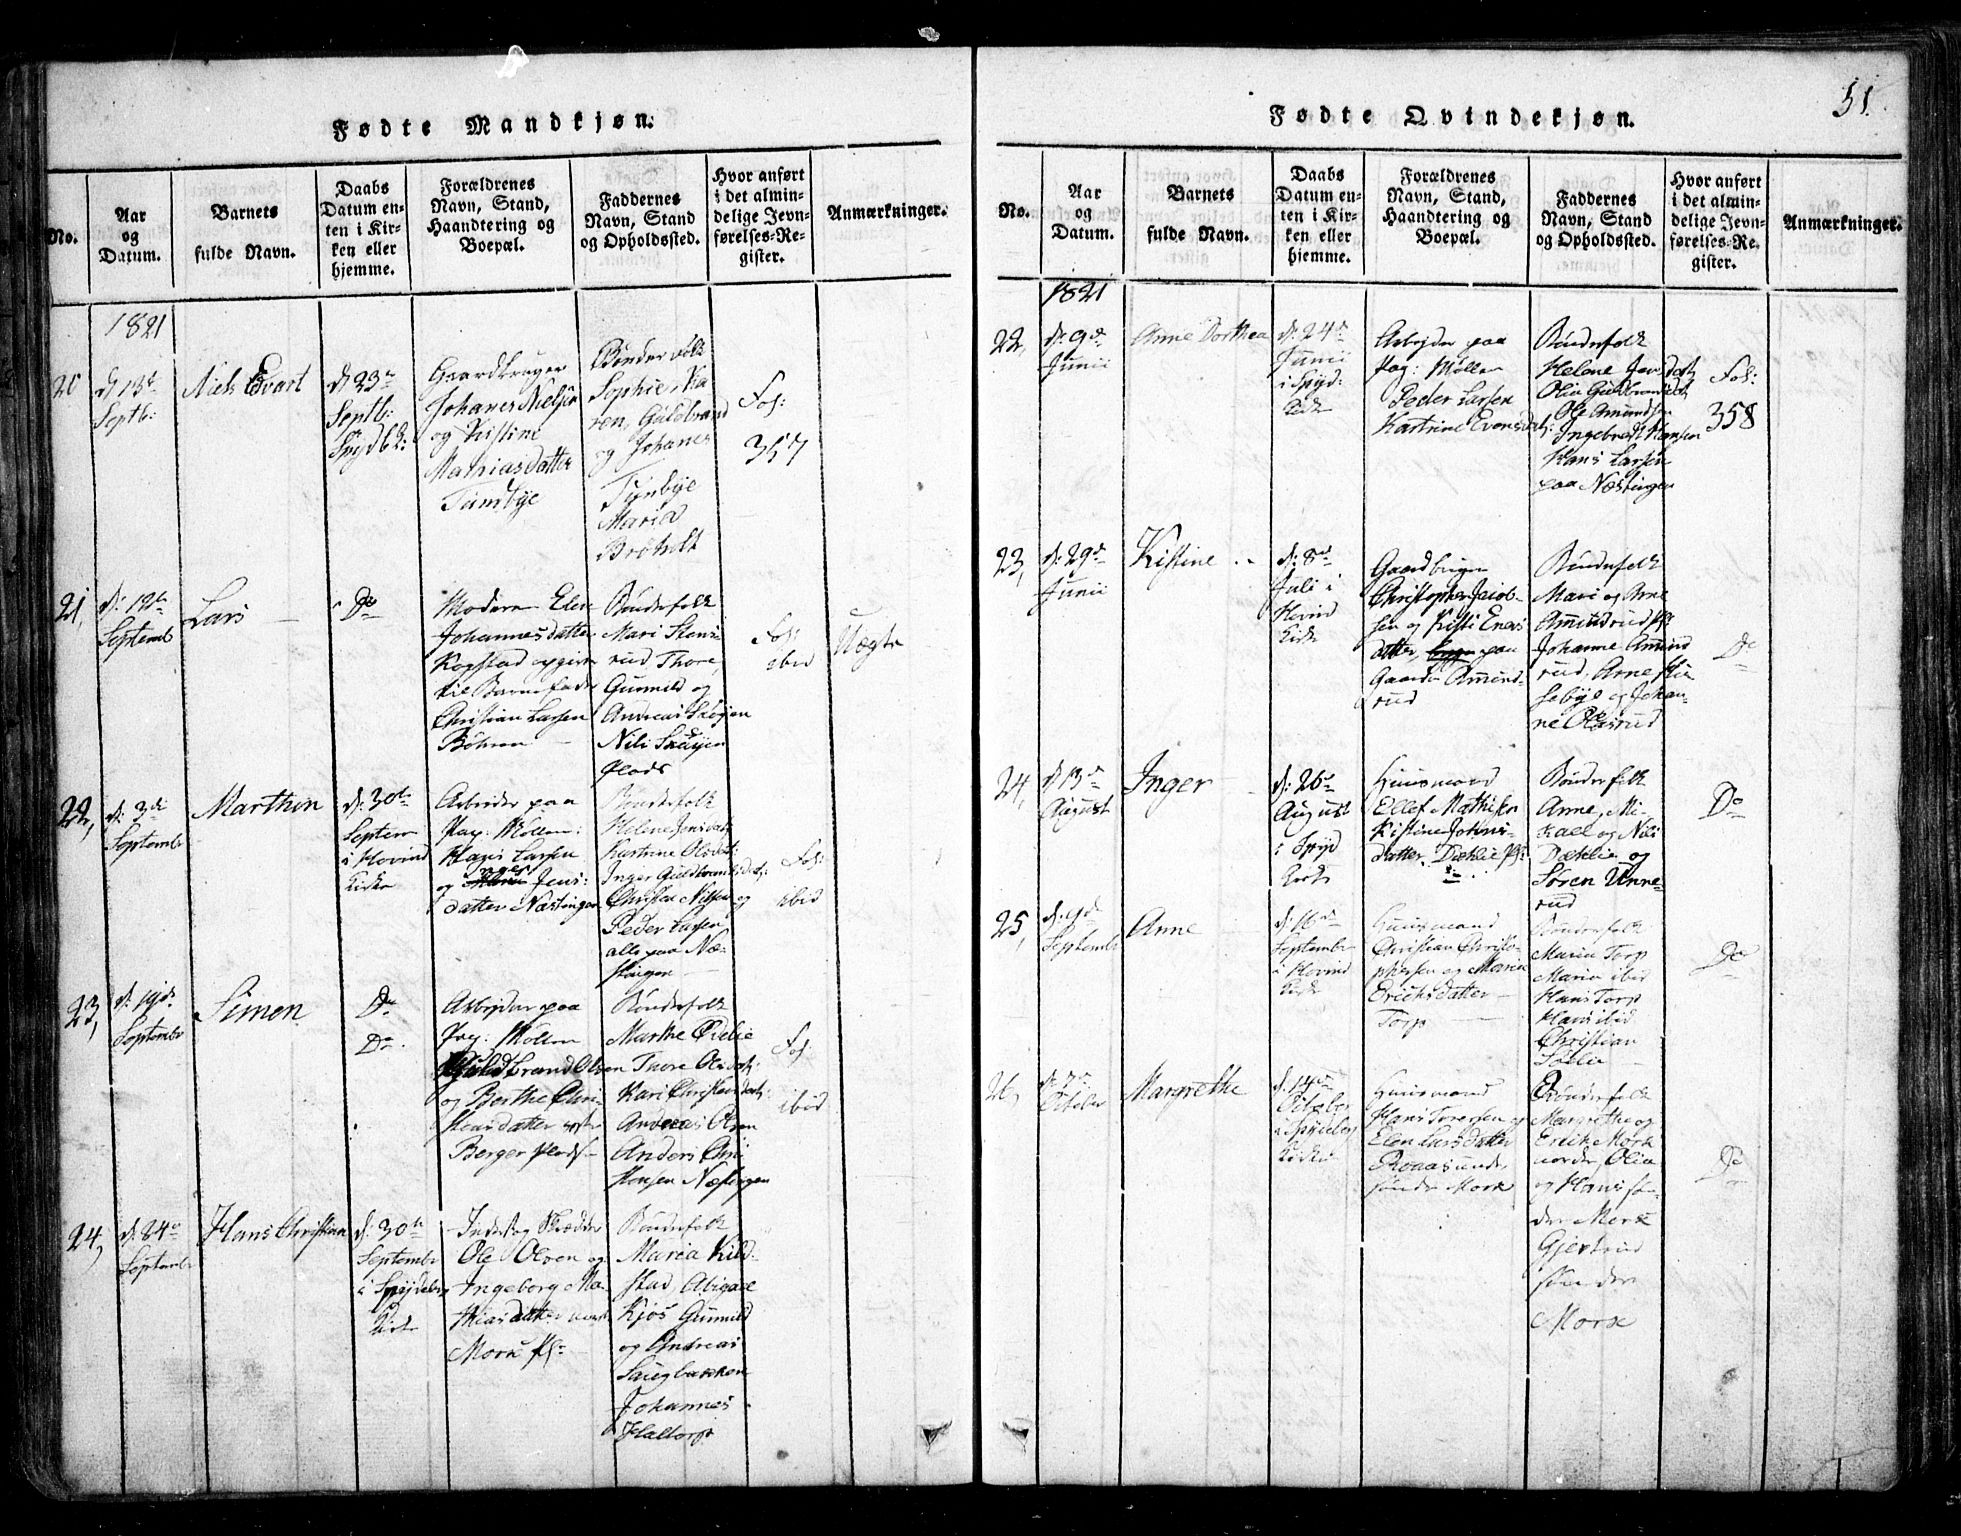 51.
Fødte Mandkjøn.
No.
Aar
og
Datum.
Barnets
fulde Navn.
Daabs
Datum en-
ten i Kir-
ken eller
hjemme.
Forældrenes
Navn, Stand,
Haandtering og
Boepæl.
Faddernes
Navn, Stand
og Opholdssted.
Hvor anført
i det almin-
delige Jevn-
førelses-Re-
gister.
Anmærkninger.
1821
20
d 13de
Septb:
Niels Evart
d 23de
Septb:
Spydb K:
Gaardbruger
Johanes Nielsen
og Kistine
Mathiasdatter
Tumbye
Bønder folk
Sophie, Ka
ren, Guldbrand
og Johanes
Tynbye
Maria
Brøholt
Fol:
357
21,
d: 12te
Septembr
Lars
Do
Moderen Elen
Johannesdatter
Kogstad opgiven
til Barnefader
Christian Larsen
Bøhren
Bønderfolk
Mari Stens-
rud, Thore,
Gunnild og
Andreas Skøyen
Nils Skøyen
Plads
Fol:
ibid
Uægte
22,
d: 3de
Septembr
Marthin
d: 30te
Septem
i Hovind
Kirke
Arbeider paa
Pap: Møllen:
Hans Larsen
og Inger Jens-
datter Næstingen
Bønderfolk
Helene Jensdatr
Kartrine Olsdatr:
Inger Guldbrandsdatr:
Christen Nilsen og
Peder Larsen
alle paa Næ-
stingen
Fol:
ibid
23,
d: 19de
Septembr
Simon
Do
Do
Arbeyder paa
Pap: Møllen
Guldbrand Olsen
og Berthe Chri-
stensdatter
Berger Plads
Bønderfolk
Marthe Ødelie
Thore Olsdatr:
Kari Christensdatr:
Andreas Olsen
Anders Chri
stensen Næstingen
Fol:
ibid
24,
d: 24de
Septembr
Hans Christian
d: 30te
Septembr
i Spydeberg
Kirke
Inderst og Skrædder
Ole Olsen og
Ingeborg Ma-
thiasdatter
Mork Pl:
Bønderfolk
Maria Kild-
stad, Abigael
Kjos Gunnild
og Andreas
Saugbakken
Johannes
Haltorp
Fødte Qvindekjøn.
No.
Aar
og
Datum.
Barnets
fulde Navn.
Daabs
Datum en-
ten i Kir-
ken eller
hjemme.
Forældrenes
Navn, Stand,
Haandtering og
Boepæl.
Faddernes
Navn, Stand
og Opholdssted.
Hvor anført
i det almin-
delige Jevn-
førelses-Re-
gister.
Anmærkninger.
1821
22,
d: 9de
Junii
Anne Dorthea
d: 24de
Junii
i Spyd:
Kirke
Arbeyder paa
Pap: Møllen
Peder Larsen
Kartrine Evensdatr:
Bønderfolk
Helene Jensdatr
Olia Guldbrandsdatr
Ole Amundsen
Ingebredt Hansen
Hans Larsen
paa Næstingen
Fol:
358
23,
d: 29de
Junii
Kistine
d: 8de
Juli i
Hovind
Kirke
Gaardbruger
Christopher Jacob-
sen og Kisti Eners
datter, paa
Gaarden Amund-
rud
Bønderfolk
Mari og Arne
Amundrud Pl:
Johanne Amund
rud, Arne
sebye og Johan-
ne Olasrud
Do
24,
d: 13de
August
Inger
d: 26de
August
i Spyd
Kirke
Huusmand
Ellef Mathisen
Kistine Johns-
datter. Dæhlie Pl:
Bønderfolk
Anne, Mi-
kael og Nils
Dæhlie og
Søren Unne-
rud
Do
25,
d: 9de
Septembr
Anne
d: 16de
Septembr
i Hovind
Kirke
Huusmand
Christian Christo-
phersen og Maria
Erichsdatter
Torp
Bønderfolk
Maria Torp
Maria ibid
Hans Torp
Hans ibid
Christian
Sælie
Do
26,
October
Margrethe
d: 14de
October
i Spydeberg
Kirke
Huusmand
Hans Torersen og
Elen Larsdatter
Roaas under
søndr Mork
Bønderfolk
Margrethe og
Erick Mork
nordre, Olia
og Hans søn-
dre Mork
Gjertrud
søndre
Mork
Do